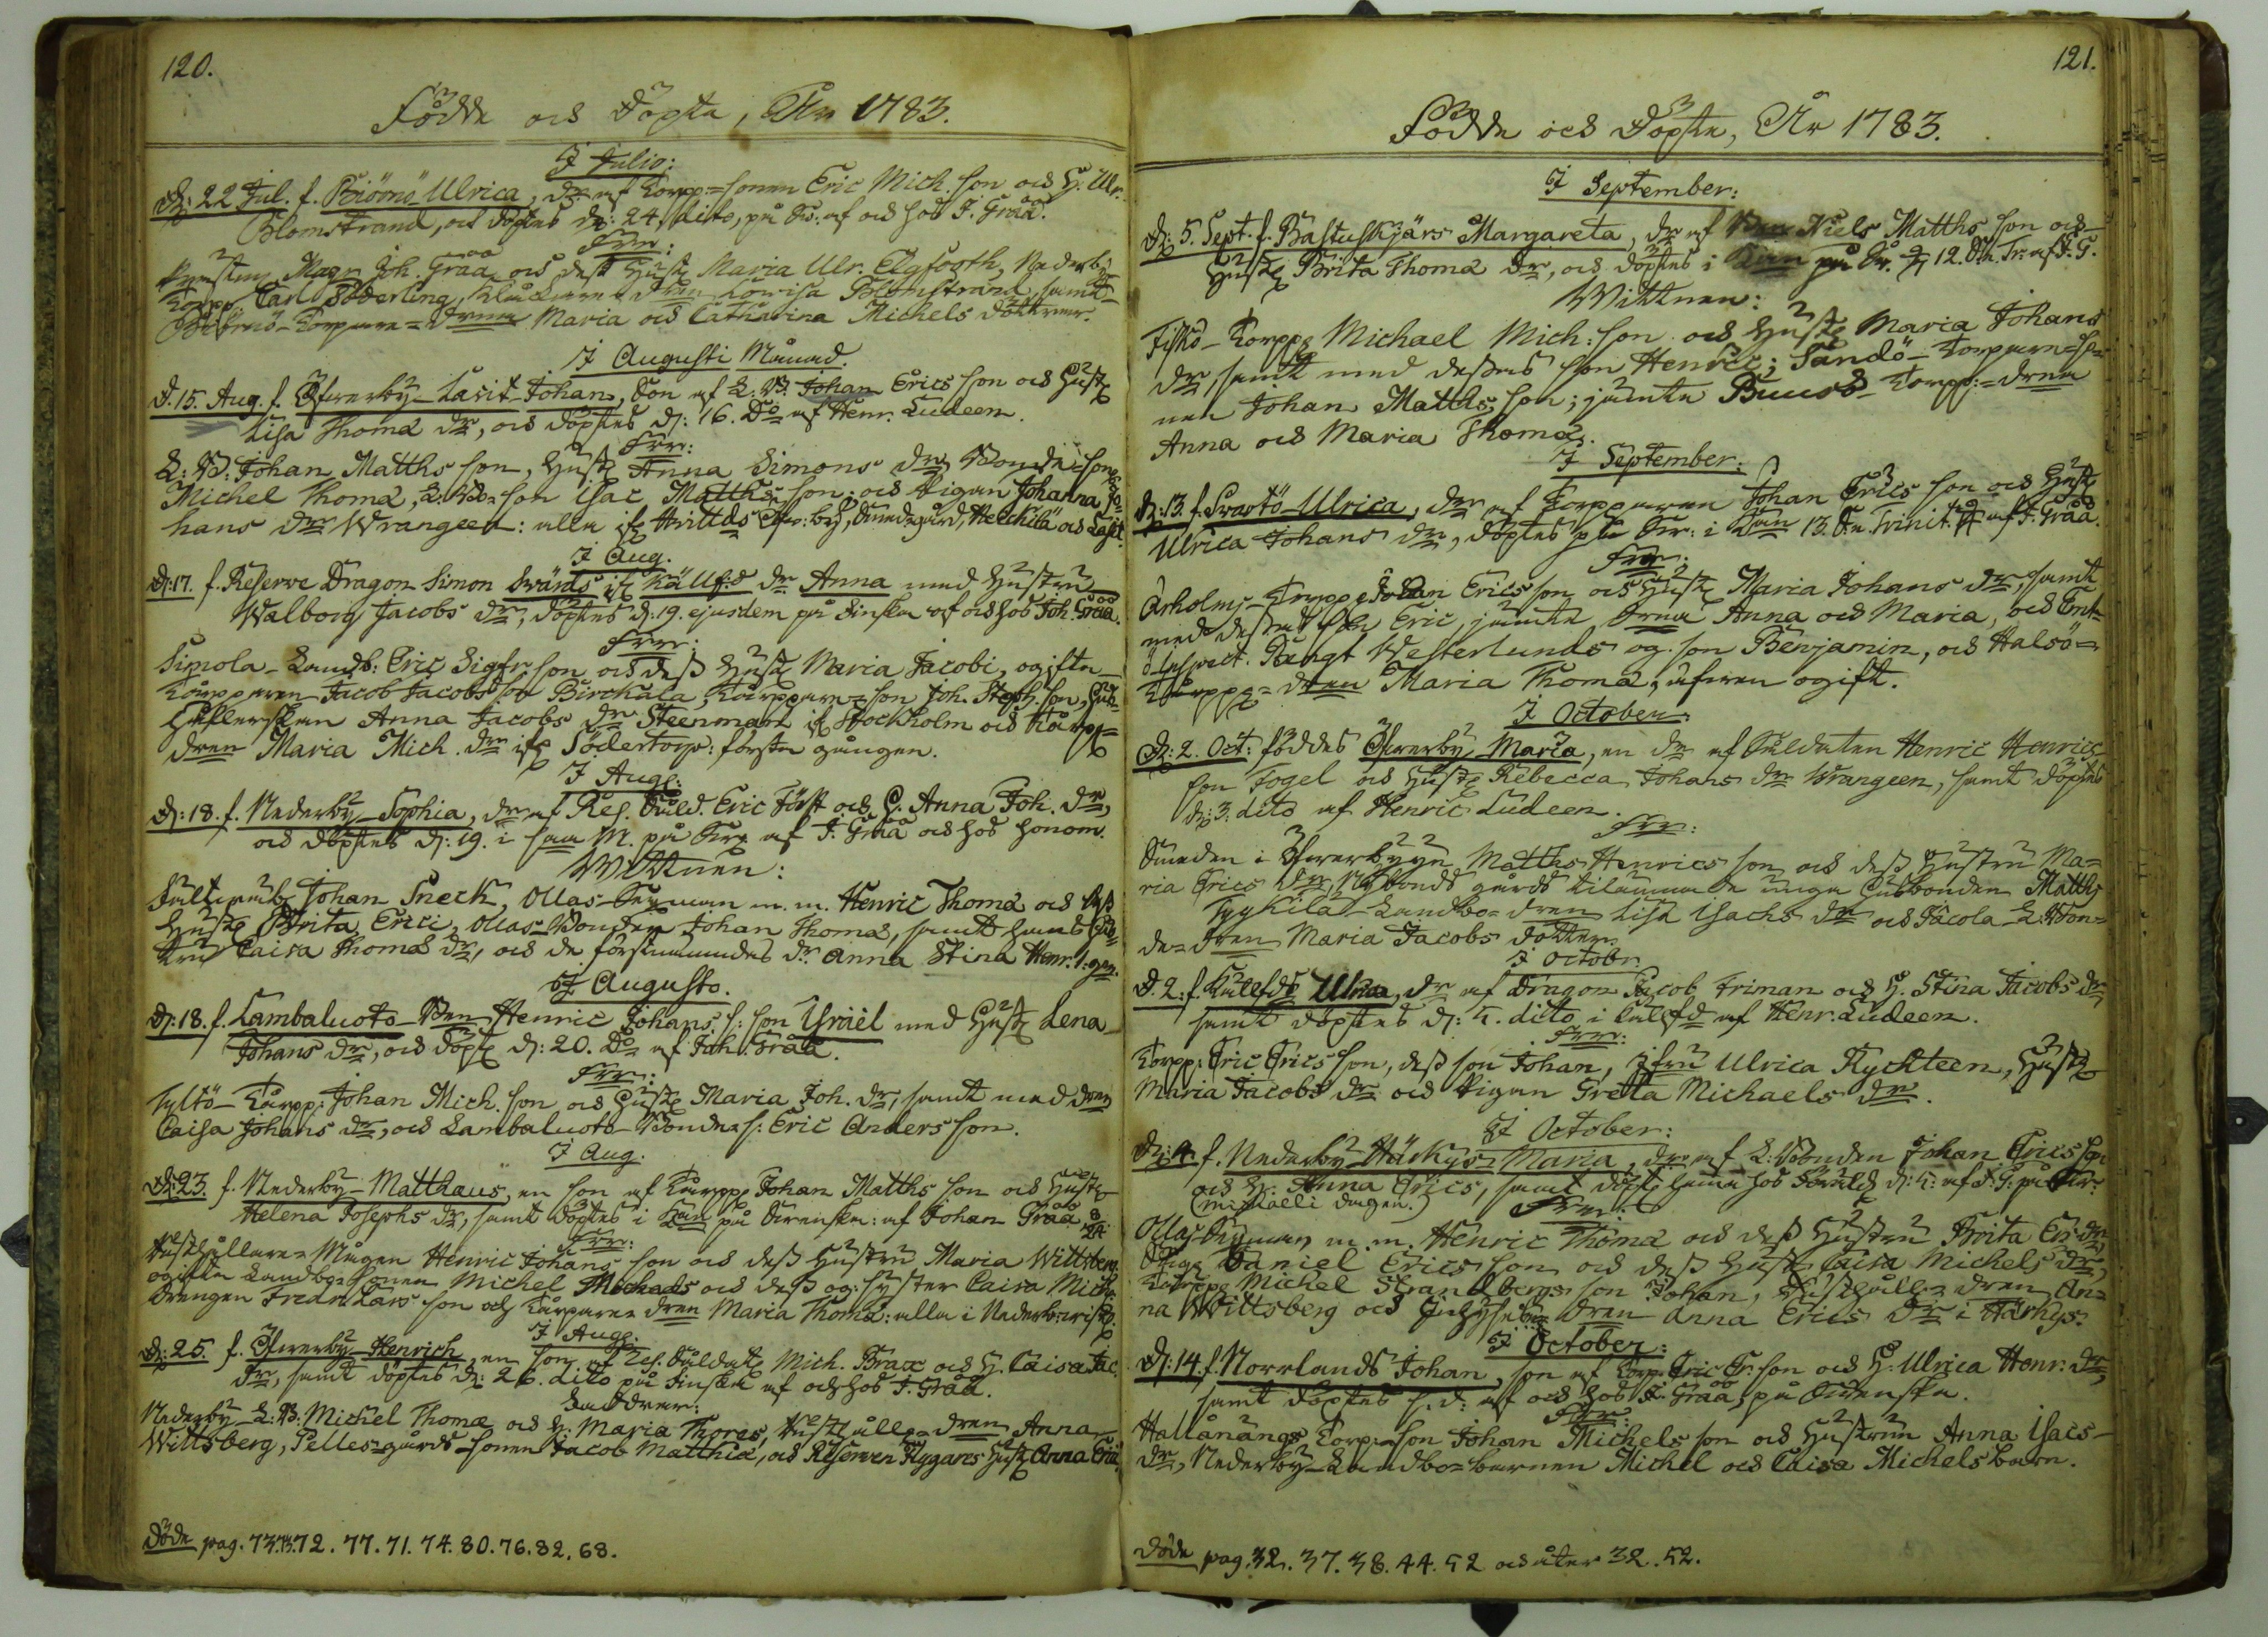 120.
Födde och Döpta, År 1783.
I Julio:
D: 22 Jul. f. Biörnö Ulrica, dr af Torpp:=sonen Eric Mich. son och H: Ulr.
Blomstrand, och döptes d: 24. dito, på Sv: af och hos J. Gråå.
Frr:
Magr Joh. Gråå och dess Hust. Maria Ulr. Elgfooth, Nederb:
Torpp Carl Söderling, Klåckare=dren Lowisa Blomstrand, samt
Biörnö-Torpare=drna Maria och Catharina Michels döttrar.
I Augusti Månad.
D. 15. Aug. f. Öfwerby-Lasit-Johan, Son af L: B. Johan Erics son och Hust
Lisa Thomæ dr, och döptes d: 16. Do af Henr. Ludeen.
Frr:
L: B. Johan Matths son, Hust Anna Simons dr, Bonde=son
Michel Thomæ, L: B=son Isac Matths son, och Pigan Johanna Jo=
hans dr Wrangeen: alla if Hvittds Öfw:by, Smedsgård, Heickilä och Lasit.
I Aug.
D: 17. f. Reserve Dragon Simon Svärds if Källf:d dr Anna med Hustru
Walborg Jacobs dr, döptes d: 19. ejusdem på Finska af och hos Joh. Gråå.
Frr:
Simola-Landb: Eric Sigfr. son och dess Hust Maria Jacobi, ogifta
Torpparen Jacob Jacobs son Birckala, Torppare=son Joh. Steph. son,
Anna Jacobs dr Steenman if Stockholm och Torpp=
dren Maria Mich. dr if Södertorp: första gången.
I Aug:
D: 18. f. Nederby-Sophia, dr af Res. Suld. Eric Fäst och H. Anna Joh. dr,
och döptes d: 19. i saa M. på Sv. af J. Gråå och hos honom.
Wittnen:
Johan Sneck, Ollas-Seyman m. m. Henric Thomæ och dess
Hust Brita Erici, Ollas-Bonden Johan Thomæ, samt hans Hus=
tru Caisa Thomæ dr, och de förstnämndes dr Anna Stina Henr. 1. gn.
I Augusto.
D: 18. f. Lambaluoto-Bon Henric Johans s: son Israël med Hust Lena
Johans dr, och döpt d: 20. Do af Joh. Gråå.
Frr:
Tyltö-Torpp: Johan Mich. son och Hust Maria Joh. dr, samt med dren
Caisa Johans dr, och Lambaluoto-Bonde=s: Eric Anders son.
I Aug.
D: 23. f. Nederby-Matthæus, en son af Torpp Johan Matths son och Hust
Helena Josephs dr, samt döptes i Kyn på Svenska: af Johan Gråå 8/24.
Frr:
Rusthållare=Mågen Henric Johans son och dess Hustru Maria Wittsberg
ogifta Landbo=sonen Michel Michels och dess og: syster Caisa Mich.
drengen Fredr. Lars son och Torpare=dren Maria Thomæ: alla i Nederby
I Aug:
D: 25. f. Öfwerby-Henrich, en son af Res. Suldat Mich. Brax och H. Caisa Jac.
dr, samt döptes d: 26. dito på Finska af och hos J. Gråå.
Faddrar:
Nederby-L: B. Michel Thomæ och H: Maria Thores, Rusthålle=dren Anna
Wittsberg, Pelles=gårds-sonen Jacob Matthiæ, och Reserven Flygares Hust Anna Eric
Döde pag. 72. 77. 71. 74. 80. 76. 82. 68.
121.
Födde och Döpte, År 1783.
I September:
D: 5. Sept. f. Bastuskjärs Margareta, dr af Niels Matths son och
Hust Brita Thomæ dr, och döptes i på Sv. 12. S. e. Tr. af J. G.
Wittnen:
Fiskö-Torpp Michael Mich: son och Hust Maria Johans
dr, samt med desses son Henric; Sandö-Torparen=so=
nen Johan Matths son; jämte Buusö-Torpp:=dren
Anna och Maria Thomæ.
I September:
D: 13. f. Svartö-Ulrica, dr af Torpparen Johan Erics son och Hust
Ulrica Johans dr, döptes på Sv: i Kyn 13. S. e. Trinit. af J. Gråå.
Frr:
Arholms-Torpp Johan Ericsson och Hust Maria Johans dr, samt
med desses son Eric, jämte drna Anna och Maria, och Enk=
Bengt Westerlunds og. son Benjamin, och Halsö=
Torpp=dren Maria Thomæ, äfwen ogift.
I October:
D: 2. Oct: föddes Öfwerby Maria, en dr af Suldaten Henric Henrics
son Fogel och Hust Rebecca Johans dr Wrangeen, samt döptes
d: 3. dito af Henric Ludeen.
Frr:
Smeden i Öfwerbyyn Matths Henrics son och dess Hustru Ma=
ria Erics dr, Nybonds gårds tilämnade unga husbonden Matths
Tygkilä-Landbo=dren Lisa Isachs dr och Jacola-L:Bon=
de=dren Maria Jacobs dotter.
I Octobr.
D. 2. f. Kulefds Ulrica, dr af Dragon Jacob Friman och H. Stina Jacobs dr,
samt döptes d: 4. dito i Kulefd af Henr. Ludeen.
Frr:
Torpp: Eric Erics son, dess son Johan, Jfru Ulrica Kyckteen, Hust
Maria Jacobs dr och Pigan Greta Michaels dr.
I October:
D: 4. f. Nederby-Häckys-Maria, dr af L: Bonden Johan Erics son
och H: Anna Erics, samt döpt hema hos Föräld d: 4: af J. G. på Sv:
(Michaëli dagen.) Frr:
Ollas-Seyman m. m. Henric Thomæ och dess Hustru Brita Er: dr,
Daniel Erics son och dess Hust Caisa Michels dr,
Torpp Michel Strandbergs son Johan, Rusthåll=dren An=
na Wittsberg och dren Anna Erics dr i Härkys.
I October:
D: 14. f. Norrlands Johan, son af Torp. Eric Er. son och H: Ulrica Henr: dr,
samt döptes s. d: af och hos J. Gråå, på Svenska.
Frr:
Hallånängs Torp=son Johan Michels son och Hustrun Anna Isacs-
dr, Nederby-Landbo=barnen Michel och Caisa Michels barn.
Döde pag. 32. 37. 38. 44. 52 och åter 32. 52.